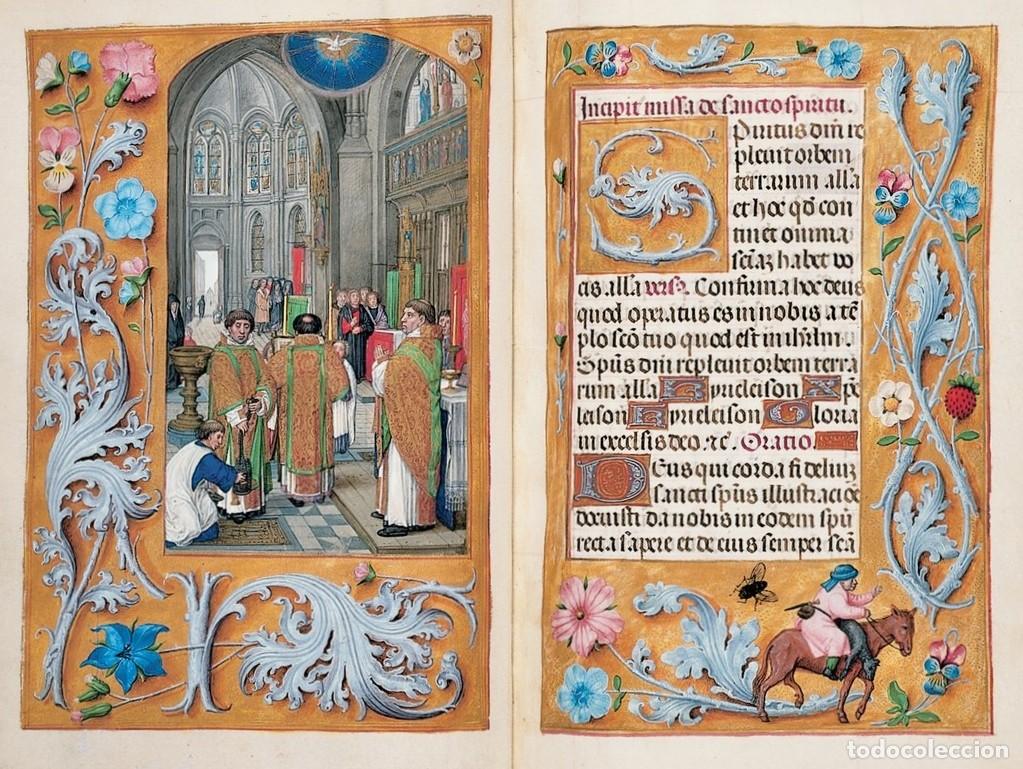 Incipit missa de sancto spiritu.
Spiritus dm̄ re
pleuit orbem
terrarum all'a
et hoc qd̄ con
tinet omnia
sc̄iaʒ habet vo
cis all'a vers9. Confirma hoc deus
quod operatus es in nobis a tē
plo sc̄o tuo quod est in ihrlm.
Spūs dn̄i repleuit orbem terra
rum all'a Kyrieleison Xp̄e
leison Kyrieleison Gloria
in excelsis deo. ⁊ c̄ Oratio
Deus qui corda fideliuʒ
sancti spūs illustracione
docuisti da nobis in eodem spū
recta sapere et de eius semper
todocoleccion